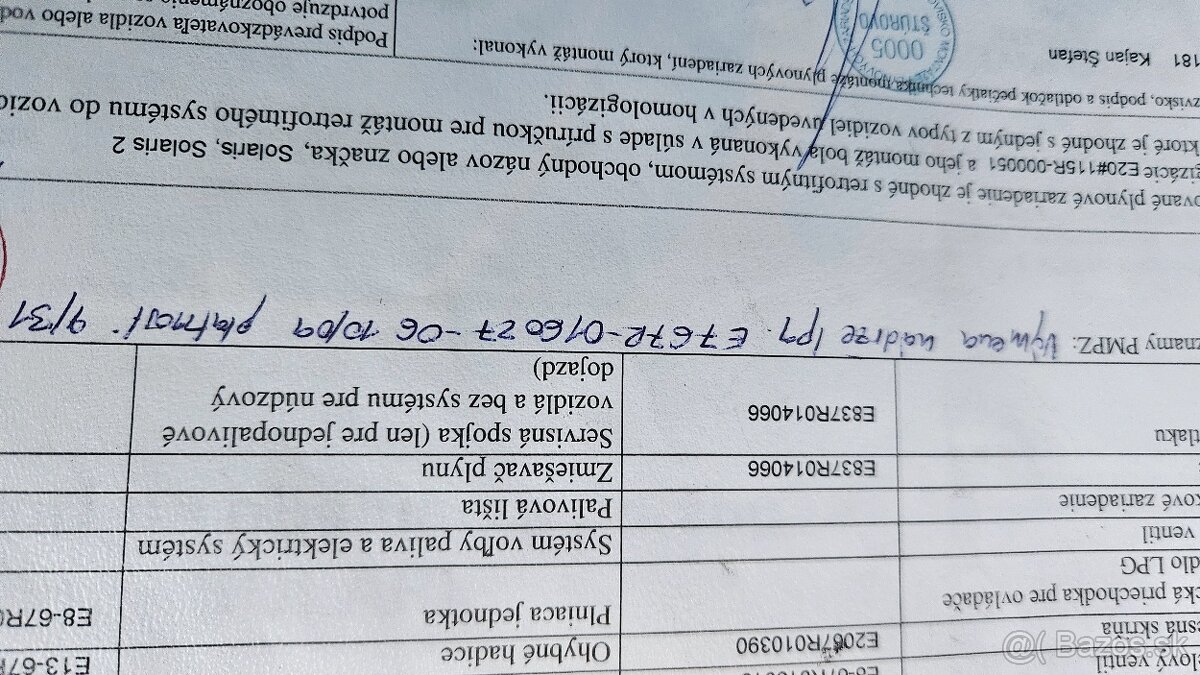 elový ventil
esná skriňa E2067R010390 Ohybné hadice E13-67R
cká priechodka pre ovládače Plniaca jednotka E8-67R0
dlo LPG
ventil Systém voľby paliva a elektrický systém
kové zariadenie Palivová lišta
E837R014066 Zmiešavač plynu
tlaku E837R014066 Servisná spojka (len pre jednopalivové
vozidlá a bez systému pre núdzový
dojazd)
znamy PMPZ: Výmena nádrže lpg. E767R-016027-06 10/09 platnosť 9/31
ované plynové zariadenie je zhodné s retrofitným systémom, obchodný názov alebo značka, Solaris, Solaris 2
gizácie E20#115R-000051 a jeho montáž bola vykonaná v súlade s príručkou pre montáž retrofitného systému do vozid
ktoré je zhodné s jedným z typov vozidiel uvedených v homologizácii.
zvisko, podpis a odtlačok pečiatky technika montáže plynových zariadení, ktorý montáž vykonal:
181 Kajan Štefan
0005
ŠTÚROVO
Podpis prevádzkovateľa vozidla alebo vod
potvrdzuje oboznámenie
@( Bazos.sk